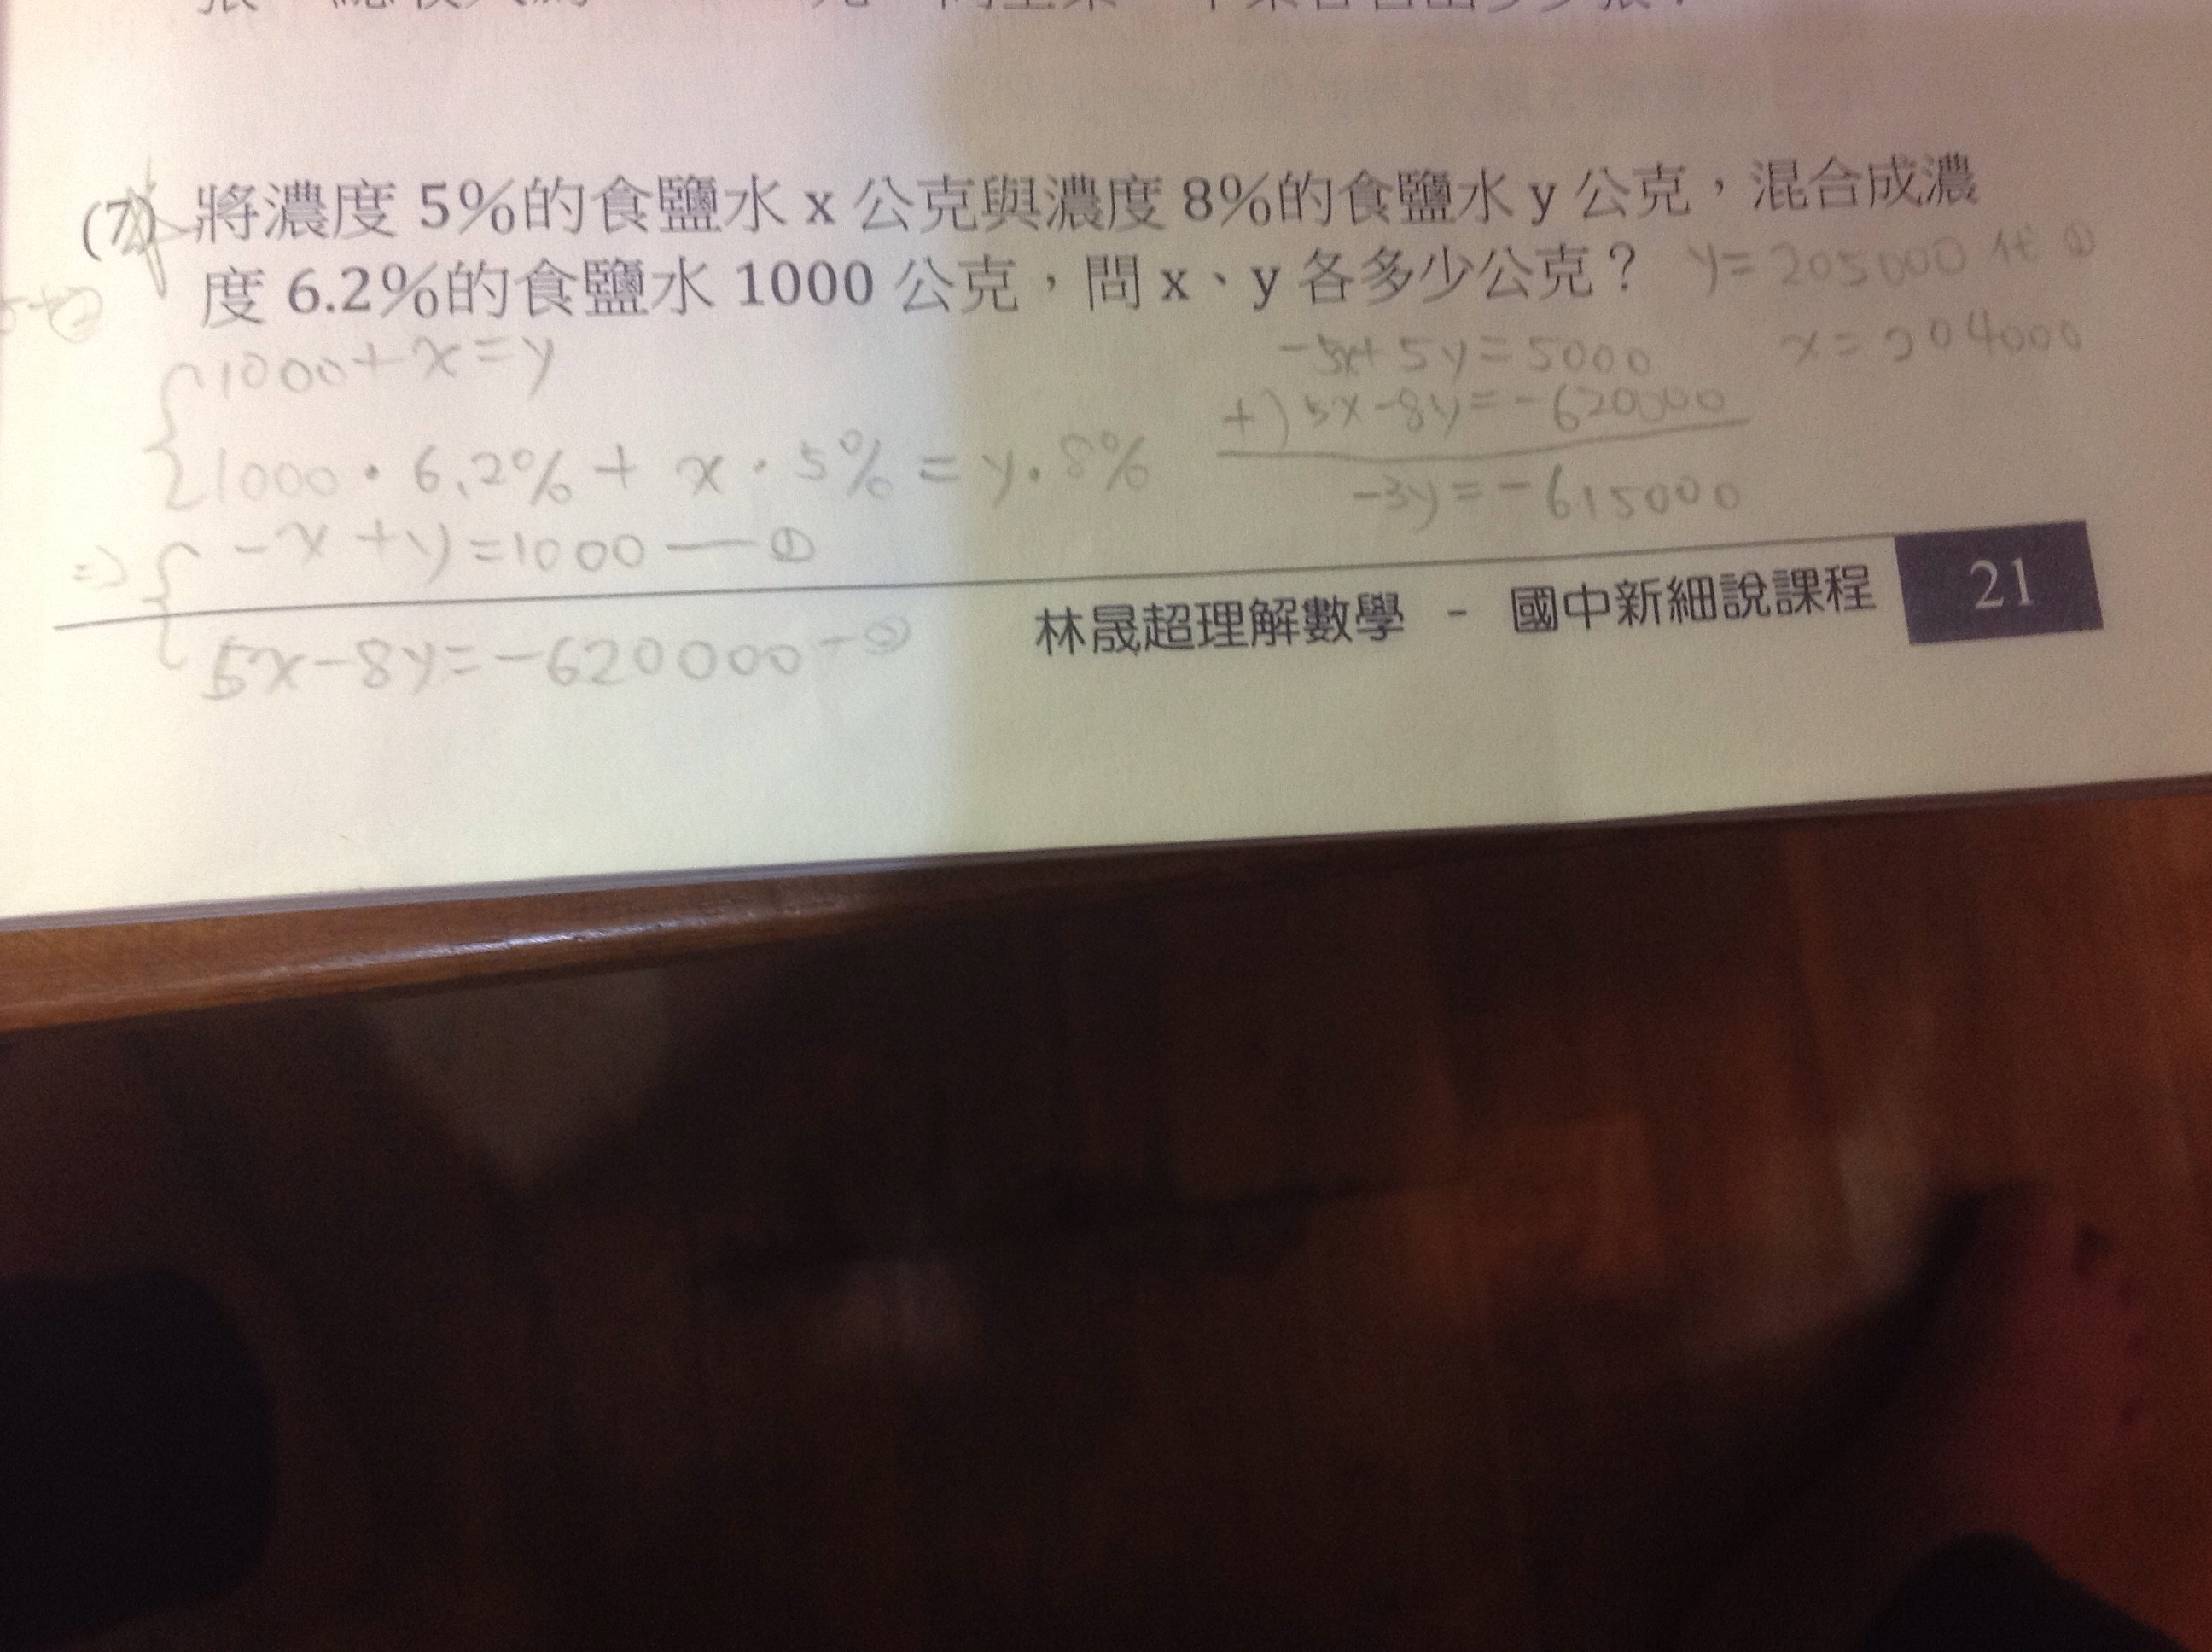 (7) 將濃度 5%的食鹽水 x 公克與濃度 8%的食鹽水 y 公克，混合成濃
度 6.2%的食鹽水 1000 公克，問 x、y 各多少公克？
y=205000 代①
x=204000
1000+x=y
1000·6.2%+x·5%=y·8%
-x+y=1000—①
5x-8y=-620000-②
-5x+5y=5000
+)5x-8y=-620000
-3y=-615000
林晟超理解數學 - 國中新細說課程 21